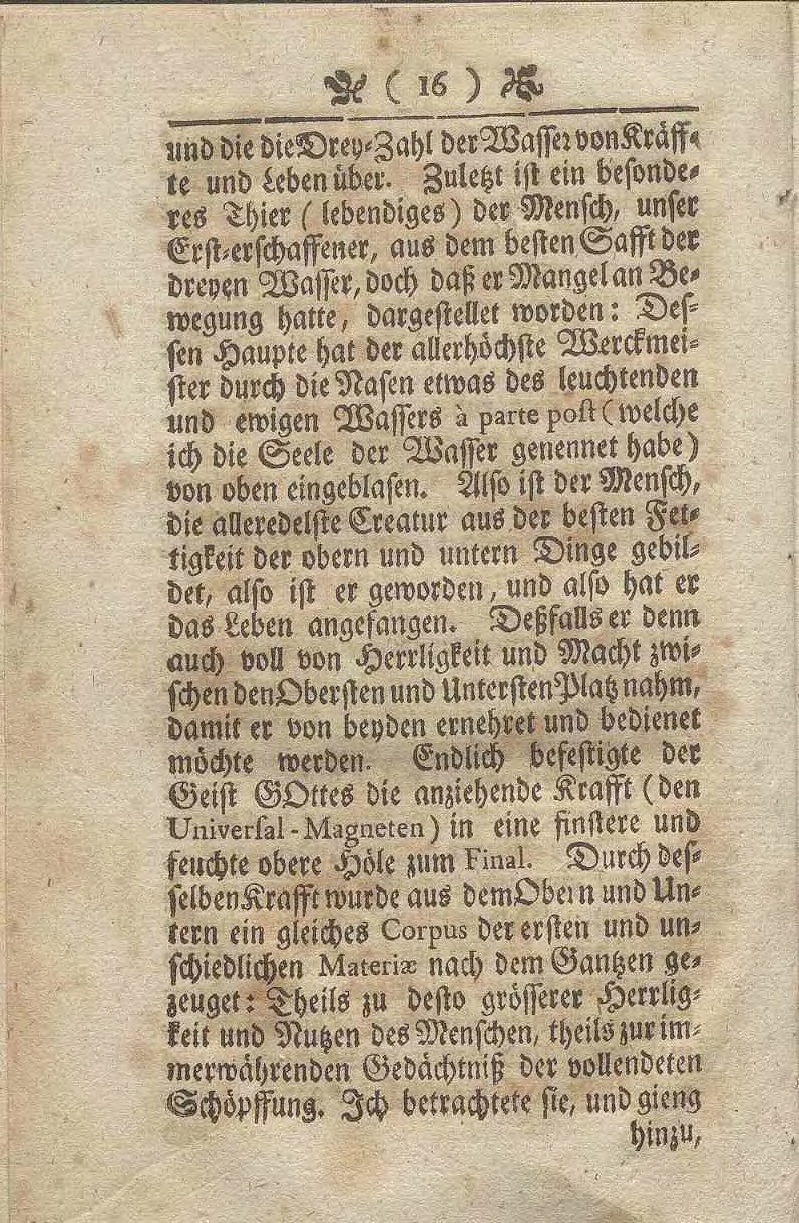 ( 16 )
und die die Drey-Zahl der Wasser von Kräff-
te und Leben über. Zuletzt ist ein besonde-
res Thier (lebendiges) der Mensch, unser
Erst-erschaffener, aus dem besten Safft der
dreyen Wasser, doch daß er Mangel an Be-
wegung hatte, dargestellet worden: Des-
sen Haupte hat der allerhöchste Werckmei-
ster durch die Nasen etwas des leuchtenden
und ewigen Wassers à parte post (welche
ich die Seele der Wasser genennet habe)
von oben eingeblasen. Also ist der Mensch,
die alleredelste Creatur aus der besten Fet-
tigkeit der obern und untern Dinge gebil-
det, also ist er geworden, und also hat er
das Leben angefangen. Deßfalls er denn
auch voll von Herrligkeit und Macht zwi-
schen den Obersten und Untersten Platz nahm,
damit er von beyden ernehret und bedienet
möchte werden. Endlich befestigte der
Geist GOttes die anziehende Krafft (den
Universal-Magneten) in eine finstere und
feuchte obere Höle zum Final. Durch des-
selben Krafft wurde aus dem Obern und Un-
tern ein gleiches Corpus der ersten und un-
schiedlichen Materiæ nach dem Gantzen ge-
zeuget: Theils zu desto grösserer Herrlig-
keit und Nutzen des Menschen, theils zur im-
merwährenden Gedächtniß der vollendeten
Schöpffung. Ich betrachtete sie, und gieng
hinzu,